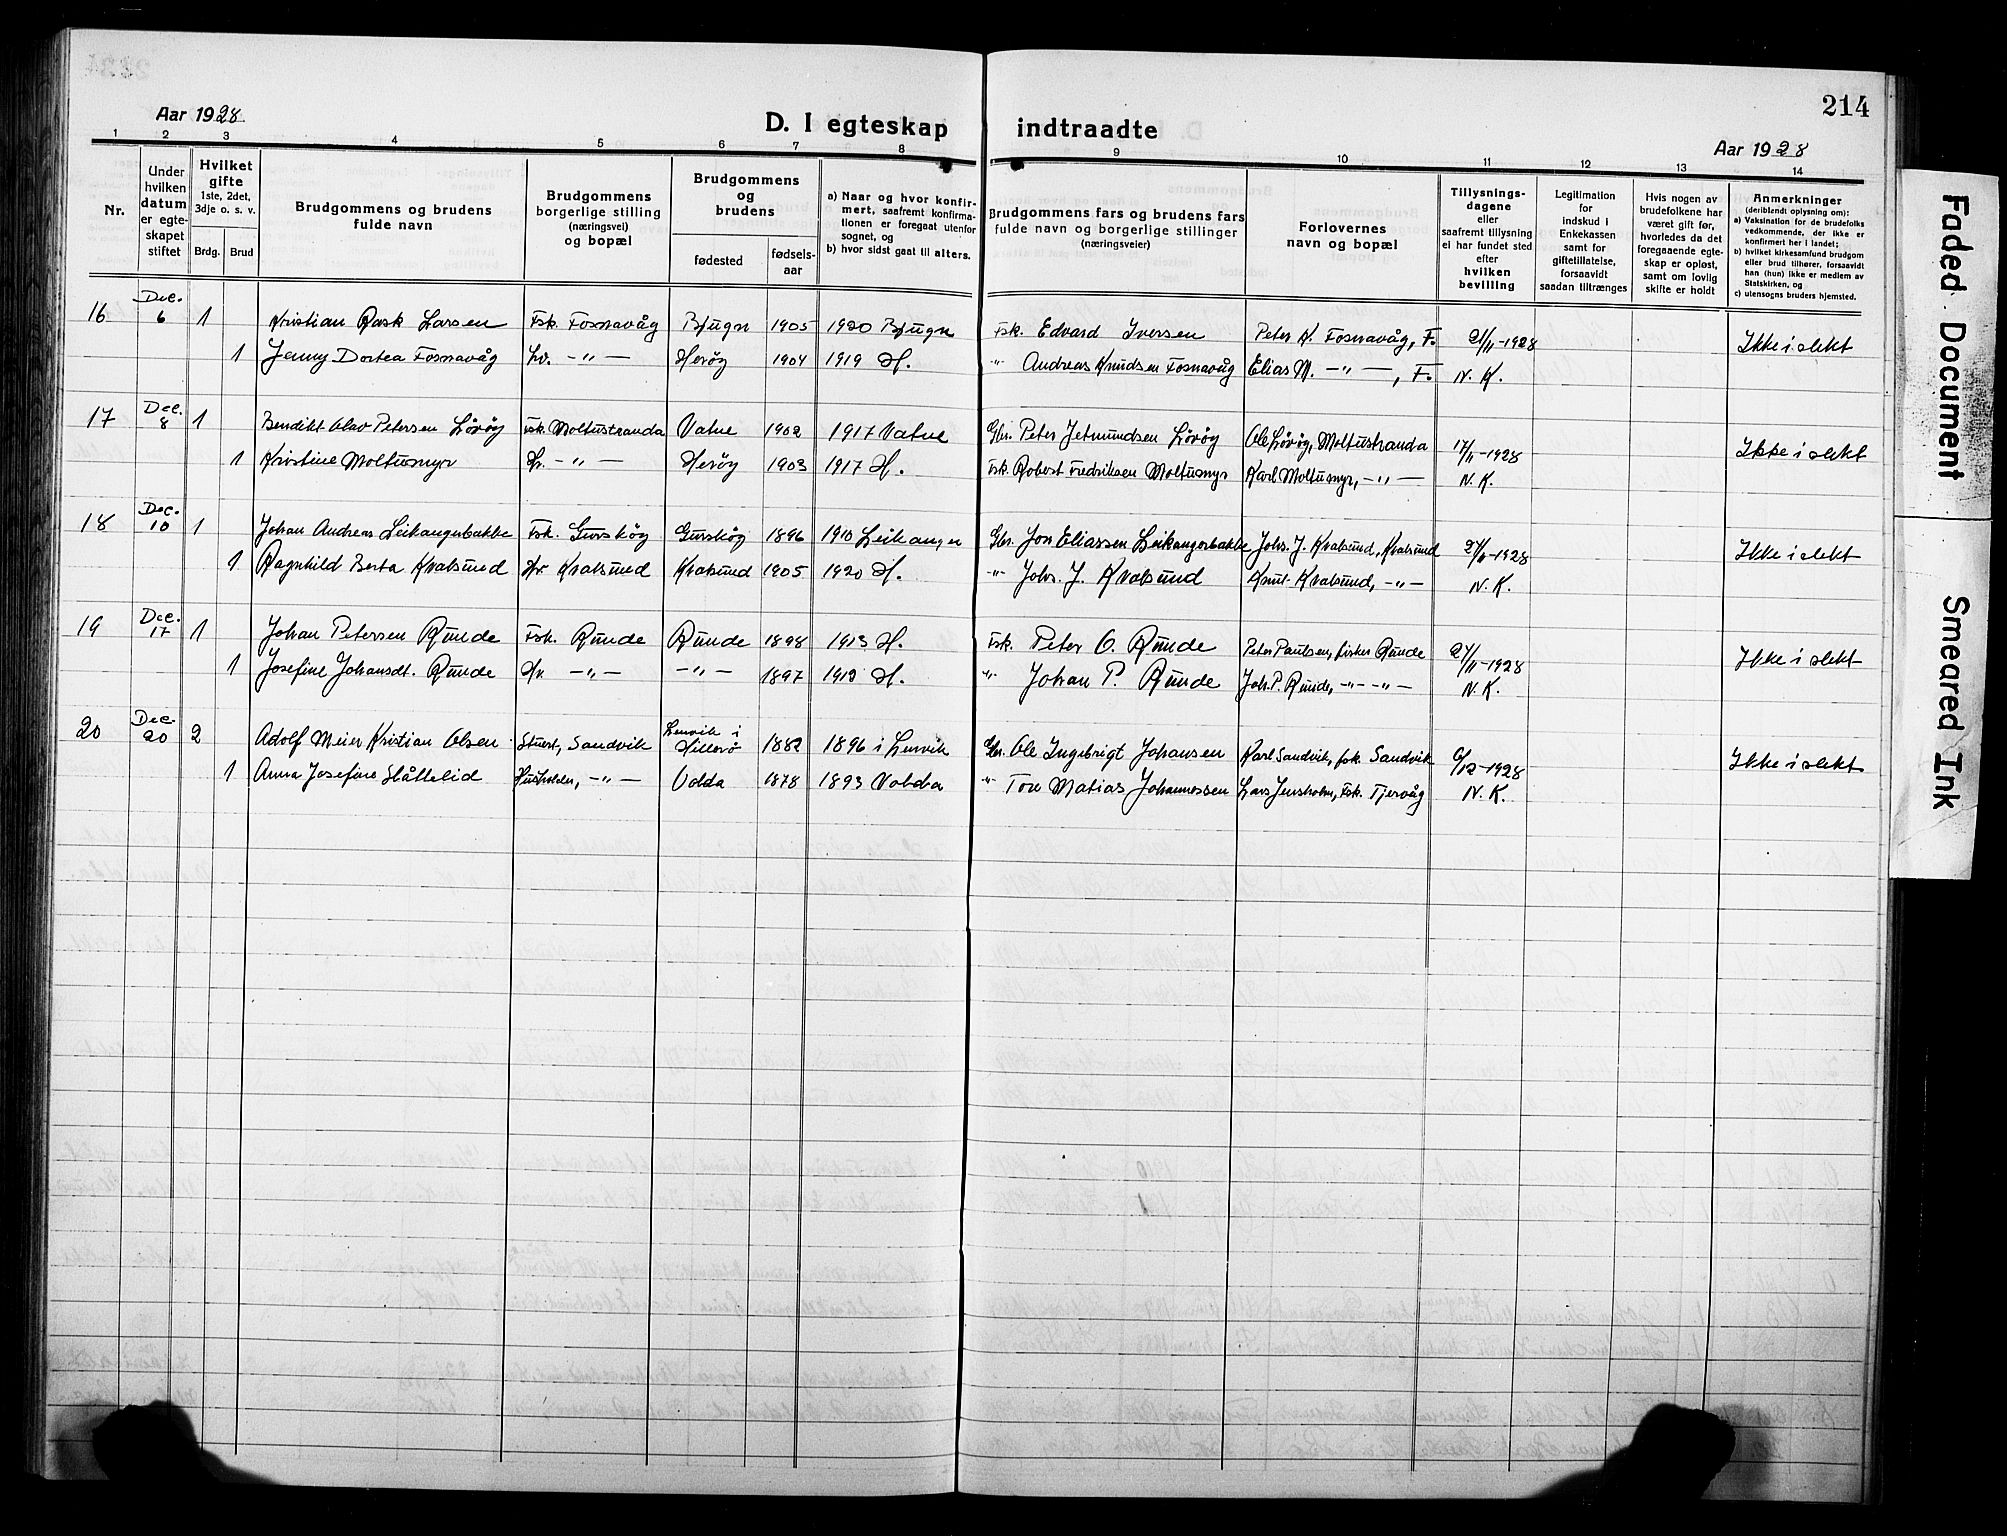 214
Aar 1928
D. I egteskap indtraadte
Aar 1928
1 2 3 4 5 6 7 8 9 10 11 12 13 14
Nr.
Under hvilken datum er egteskapet stiftet
Hvilket gifte 1ste, 2det, 3dje o. s. v.
Brdg. Brud
Brudgommens og brudens fulde navn
Brudgommens borgerlige stilling (næringsvei) og bopæl
Brudgommens og brudens
fødested fødsels-aar
a) Naar og hvor konfirmert, saafremt konfirmationen er foregaat utenfor sognet, og
b) hvor sidst gaat til alters.
Brudgommens fars og brudens fars fulde navn og borgerlige stillinger (næringsveier)
Forlovernes navn og bopæl
Tillysningsdagene eller saafremt tillysning ei har fundet sted efter hvilken bevilling
Legitimation for indskud i Enkekassen samt for giftetillatelse, forsaavidt saadan tiltrænges
Hvis nogen av brudefolkene har været gift før, hvorledes da det foregaaende egteskap er opløst, samt om lovlig skifte er holdt
Anmerkninger (deriblendt oplysning om):
a) Vaksination for de brudefolks vedkommende, der ikke er konfirmert her i landet;
b) hvilket kirkesamfund brudgom eller brud tilhører, forsaavidt han (hun) ikke er medlem av Statskirken, og
c) utensogns bruders hjemsted.
16 Dec. 6 1 Kristian Rask Larsen Fsk. Fosnavåg Bjugn 1905 1920 Bjugn Fsk. Edvard Iversen Peter K. Fosnavåg, F. 21/11-1928 Ikke i slekt
1 Jenny Dortea Fosnavåg Hv. -"- Herøy 1904 1919 H. " Andreas Knudsen Fosnavåg Elias M. -"-, F. N. K.
17 Dec. 8 1 Bendikt Olav Petersen Løvøy Fsk. Moltustranda Vatne 1902 1917 Vatne Gbr. Peter Jetmundsen Løvøy Ole Løvøy, Moltustranda 17/11-1928 Ikke i slekt
1 Kristine Moltumyr Hv. -"- Herøy 1903 1917 H. Fsk. Robert Fredriksen Moltumyr Karl Moltumyr, -"- N. K.
18 Dec. 10 1 Johan Andreas Leikangerbakke Fsk. Gurskøy Gurskøy 1896 1910 Leikanger Gbr. Jon Eliassen Leikangerbakke Johs. J. Kvalsund, Kvalsund 27/11-1928 Ikke i slekt
1 Ragnhild Berta Kvalsund Hv Kvalsund Kvalsund 1905 1920 H. -"- Johs. J. Kvalsund Knut Kvalsund, -"- N. K.
19 Dec. 17 1 Johan Petersen Runde Fsk. Runde Runde 1898 1913 H. Fsk. Peter O. Runde Peter Paulsen, fisker Runde 27/11-1928 Ikke i slekt
1 Josefine Johansdt. Runde Hv. -"- -"- 1897 1912 H. -"- Johan P. Runde Joh. P. Runde, -"- -"- N. K.
20 Dec. 20 2 Adolf Meier Kristian Olsen Stuert, Sandvik Lenvik i Hillesø 1882 1896 i Lenvik Gbr. Ole Ingebrigt Johansen Karl Sandvik, fsk. Sandvik 6/12-1928 Ikke i slekt
1 Anna Josefine Håttelid Husholder, -"- Volda 1878 1893 Volda " Tore Matias Johannessen Lars Jensholm, Fsk. Tjervåg N. K.
Faded Document
Smeared Ink